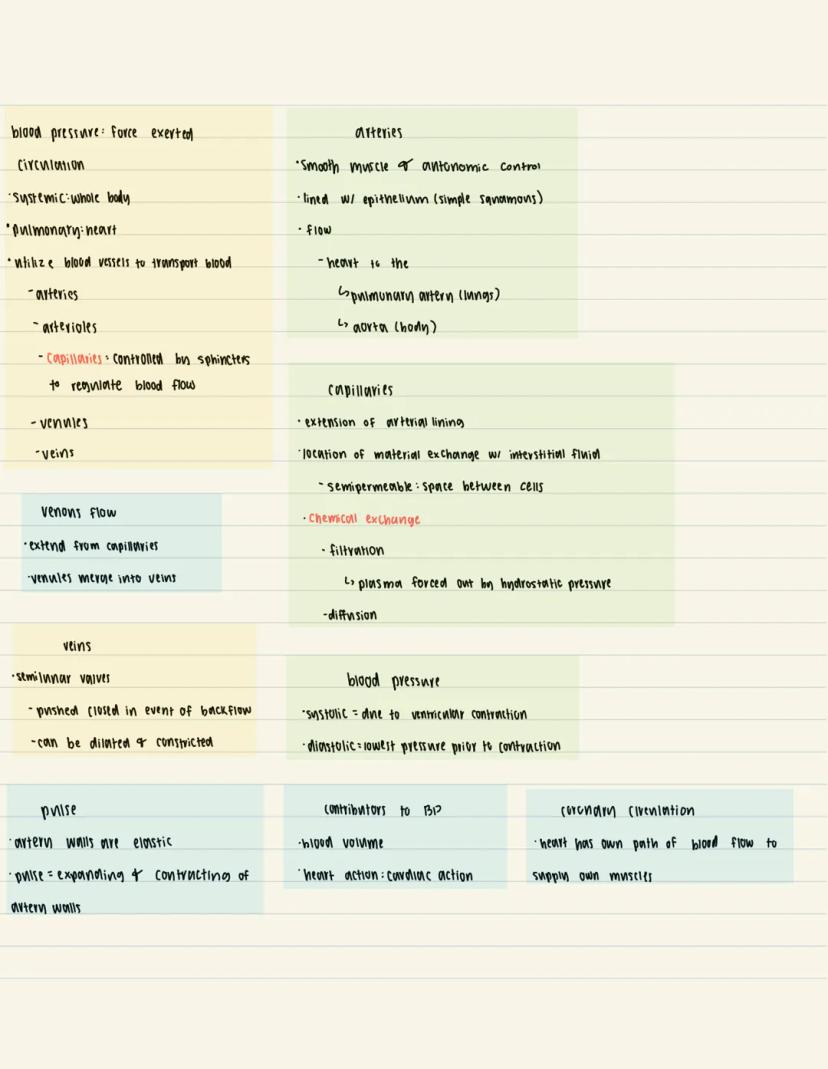 blood pressure: force exerted
circulation
·systemic: whole body
·pulmonary: heart
·utilize blood vessels to transport blood
-arteries
-arterioles
-Capillaries: controlled by sphincters
to regulate blood flow
-venules
-veins
venous flow
·extend from capillaries
·venules merge into veins
veins
·semilunar valves
-pushed closed in event of backflow
-can be dilated & constricted
pulse
·artery walls are elastic
·pulse = expanding & contracting of
artery walls
arteries
·smooth muscle & autonomic control
·lined w/ epithelium (simple squamous)
·flow
-heart to the
↳pulmonary artery (lungs)
↳ aorta (body)
capillaries
·extension of arterial lining
·location of material exchange w/ interstitial fluid
-semipermeable: space between cells
·Chemical exchange
·filtration
↳ plasma forced out by hydrostatic pressure
-diffusion
blood pressure
·systolic = due to ventricular contraction
·diastolic = lowest pressure prior to contraction
contributors to BP
·blood volume
·heart action: cardiac action
coronary circulation
·heart has own path of blood flow to
supply own muscles